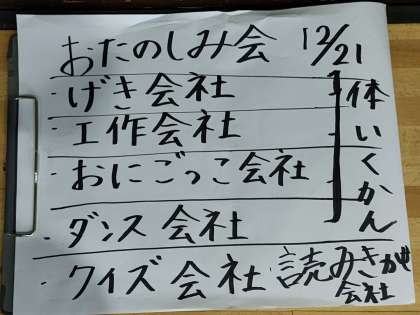 おたのしみ会 12/21
・げき会社
・工作会社
・おにごっこ会社
・ダンス会社
体いくかん
・クイズ会社・読みきかせ会社